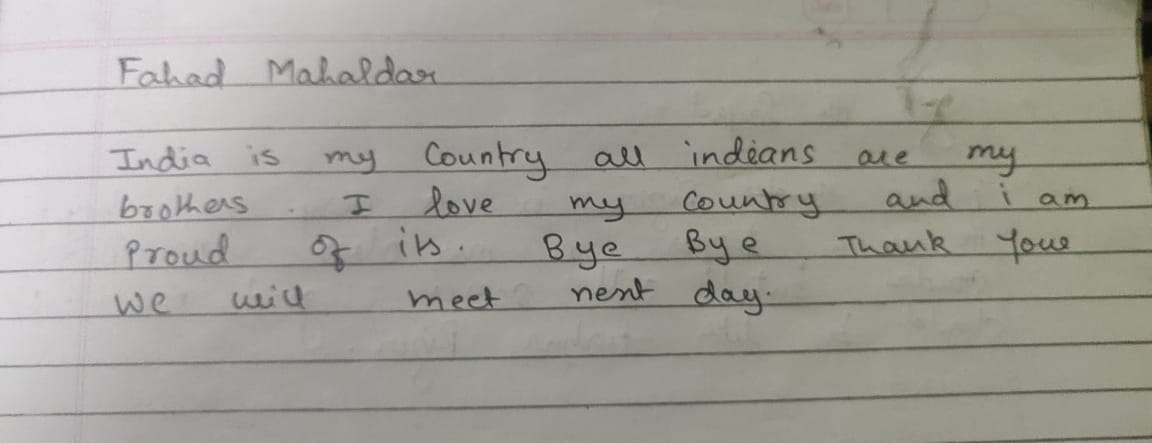 Fahad Mahaldar
India is my Country all indians are my
brothers . I love my Country and i am
Proud of its. Bye Bye Thank Youe
we will meet nent day.